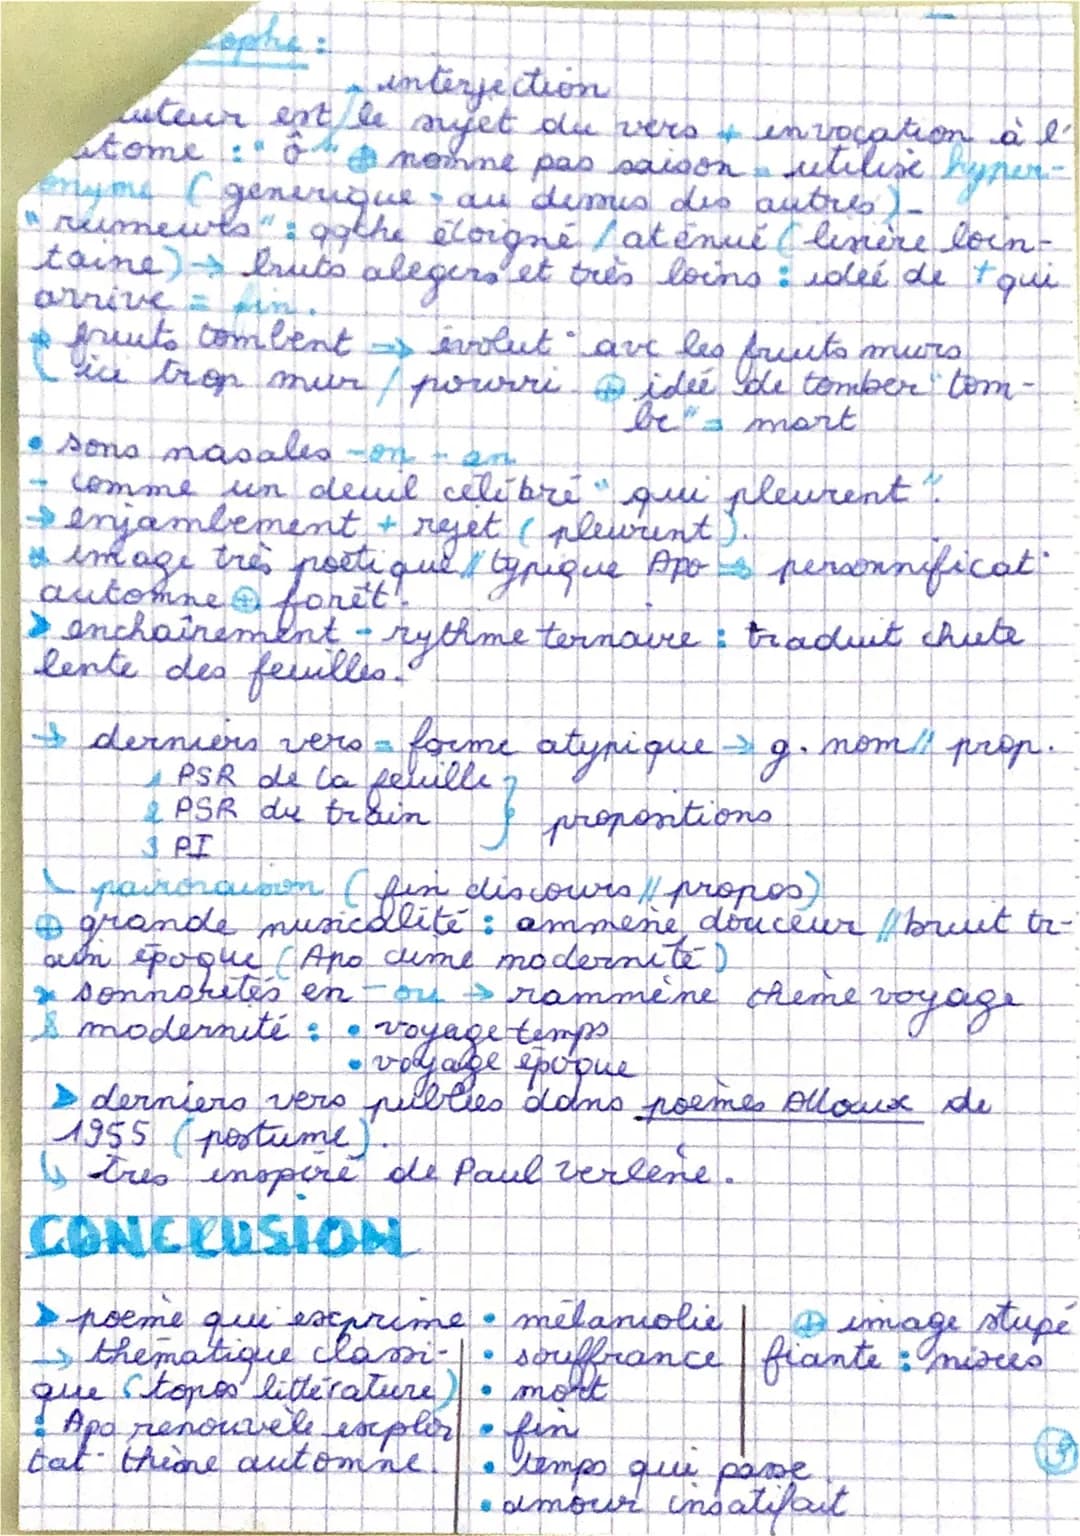 ophe :
interjection
auteur est le sujet du vers + invocation à l'
utome : " ô " ⊕ nomme pas saison = utilise hyper-
onyme ( générique = au dessus des autres) -
" rumeurs " : qqche éloigné / aténué ( lisière loin-
taine) → bruts alegers et très loins : ideé de + qui
arrive = fin.
fruits tombent → évolut° avc les fruits murs
( ici trop mur / pourri ⊕ ideé de tomber "tom-
be" = mort
• sons nasales -on - an
- comme un deuil célébré " qui pleurent ".
→ enjambement + rejet ( pleurent ).
* image très poétique // typique Apo → personnificat°
automne ⊕ forêt.
➤ enchaînement - rythme ternaire : traduit chute
lente des feuilles.
→ derniers vers = forme atypique → g. nom // prop.
1 PSR de la feuille
2 PSR du train } propositions
3 PI
( fin discours // propos)
⊕ grande musicalité : ammène douceur // bruit tr-
ain époque ( Apo aime modernité )
* sonnorités en -ou → rammène thème voyage
& modernité : • voyage temps
• voyage époque
➤ derniers vers publiés dans poèmes Alloux de
1955 ( postume ).
↳ très inspiré de Paul Verlène.
CONCLUSION
➤ poème qui exprime • mélancolie ⊕ image stupé
→ thématique classi- • souffrance fiante : nixes
que ( topos littérature) • mort
: Apo renouvèle exploi • fin
tat° thème automne. • temps qui passe
• amour insatifait